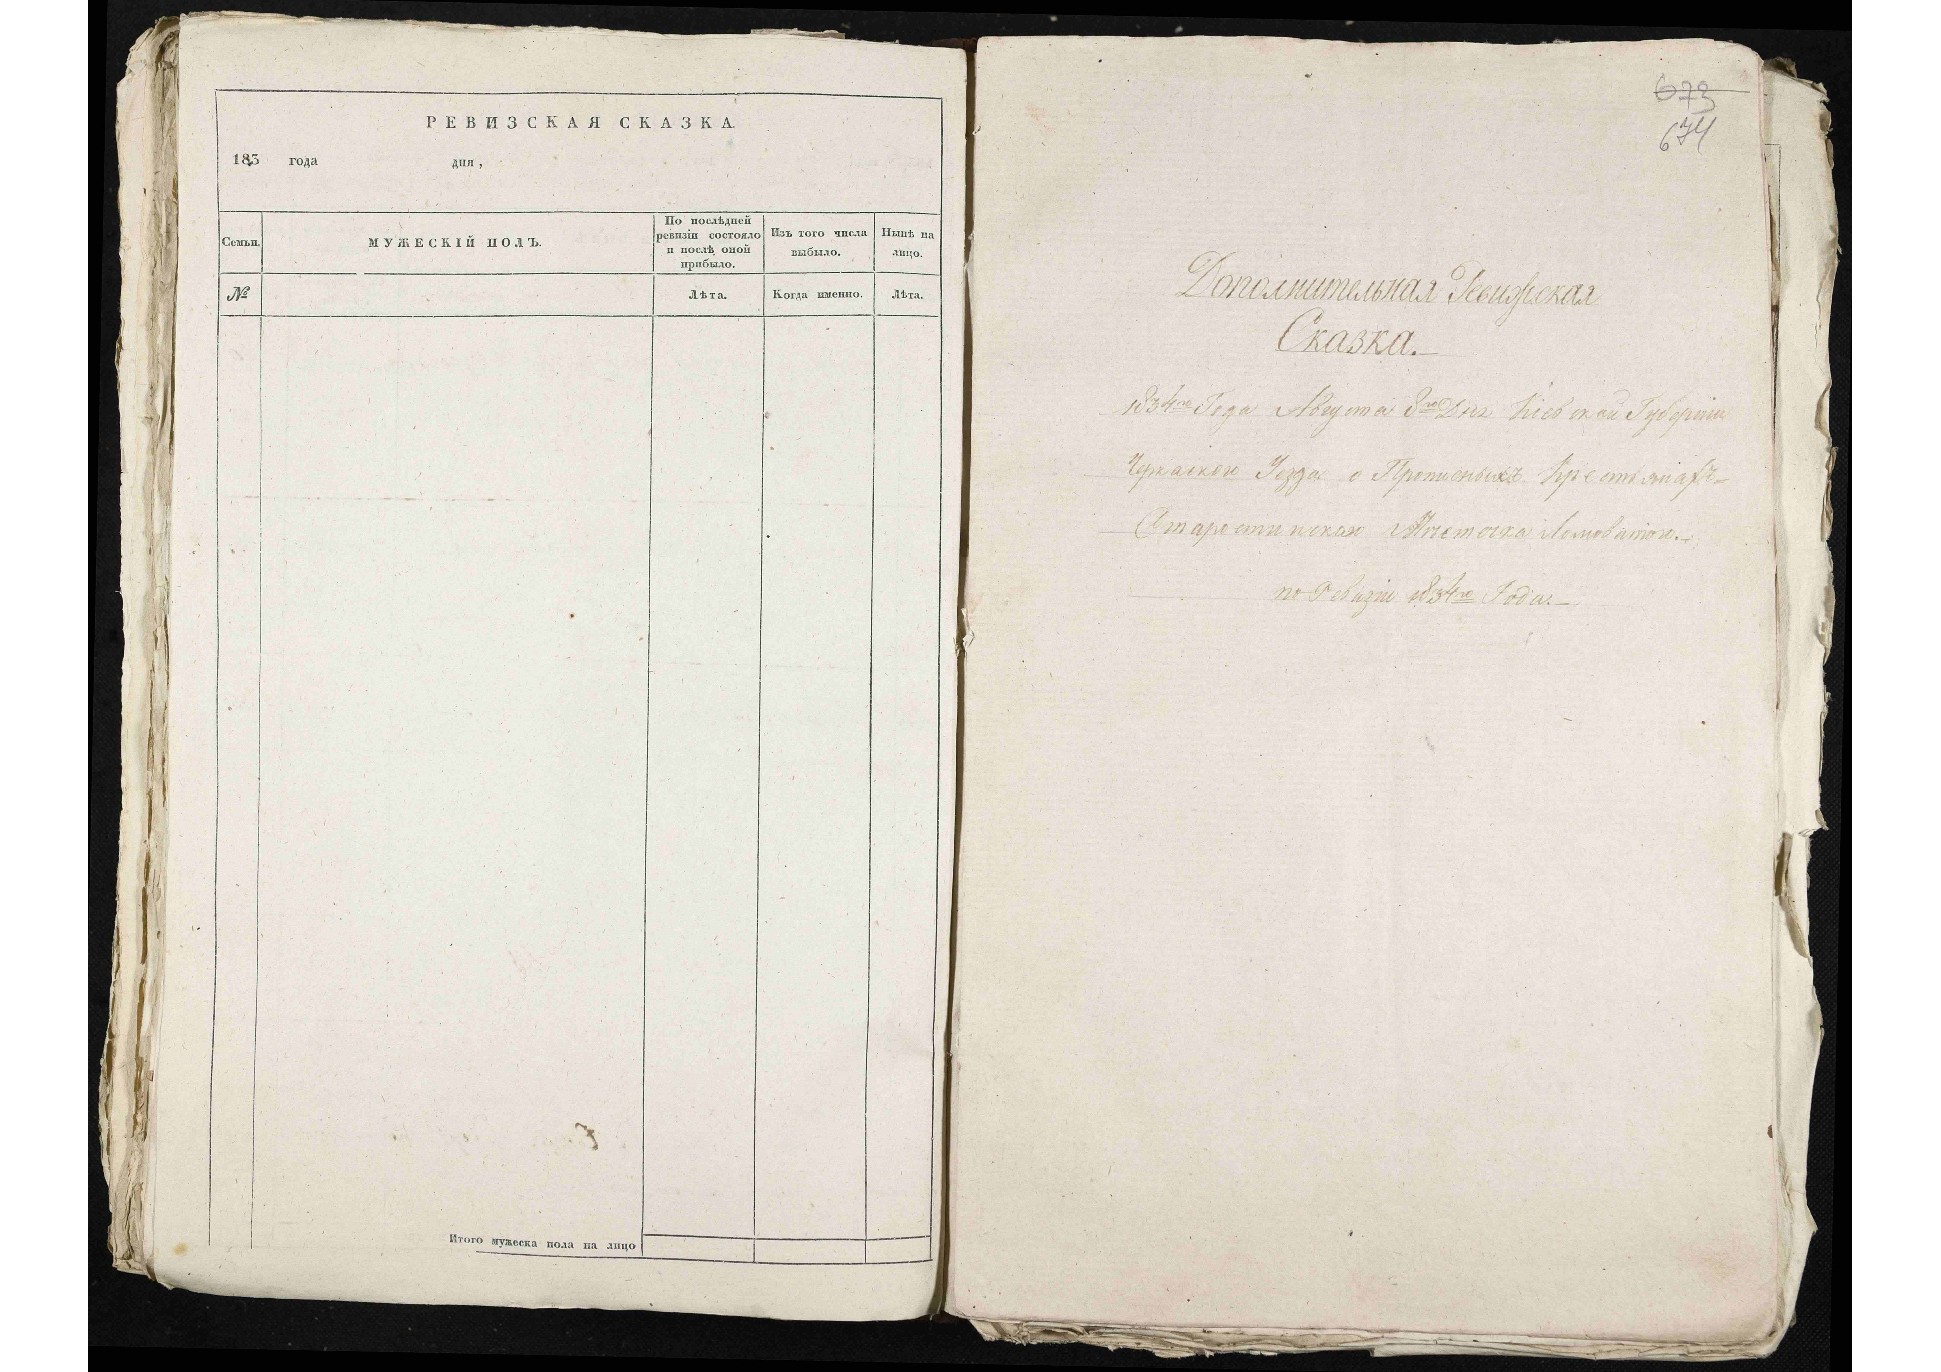 РЕВИЗСКАЯ СКАЗКА.
183 года дня,
Семьи.
МУЖЕСКІЙ ПОЛЪ.
По послѣдней ревизіи состояло и послѣ оной прибыло.
Изъ того числа выбыло.
Нынѣ на лицо.
№
Лѣта.
Когда именно.
Лѣта.
Итого мужеска пола на лицо
673
674
Дополнительная Ревизская
Сказка.
1834го Года Августа 8го Дня Кіевской Губерніи
Черкаскои Уезда о Крестьянахъ
Местечка
по Ревизіи 1834го Года.